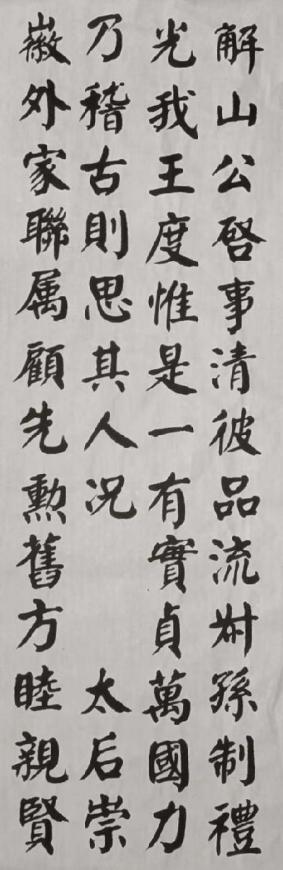 解山公啓事清彼品流叔孫制禮
光我王度惟是一有實貞萬國力
乃稽古則思其人况 太后崇
徽外家聯属顧先勲舊方睦親賢